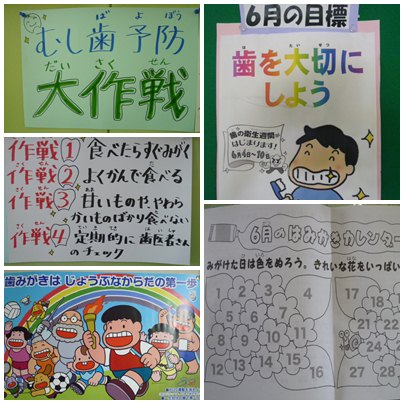 むし歯予防
大作戦
作戦① 食べたらすぐみがく
作戦② よくかんで食べる
作戦③ 甘いものや、やわら
かいものばかり食べない
作戦④ 定期的に歯医者さん
のチェック
歯みがきは じょうぶなからだの第一歩
6月の目標
歯を大切に
しよう
歯の衛生週間が
はじまります!
6月4日~10日
6月のはみがきカレンダー
みがけた日は色をぬろう。きれいな花をいっぱい
1 2 3 4 17 18
5 6 7 8
9 10 11
12 13 14 15 16 27 28